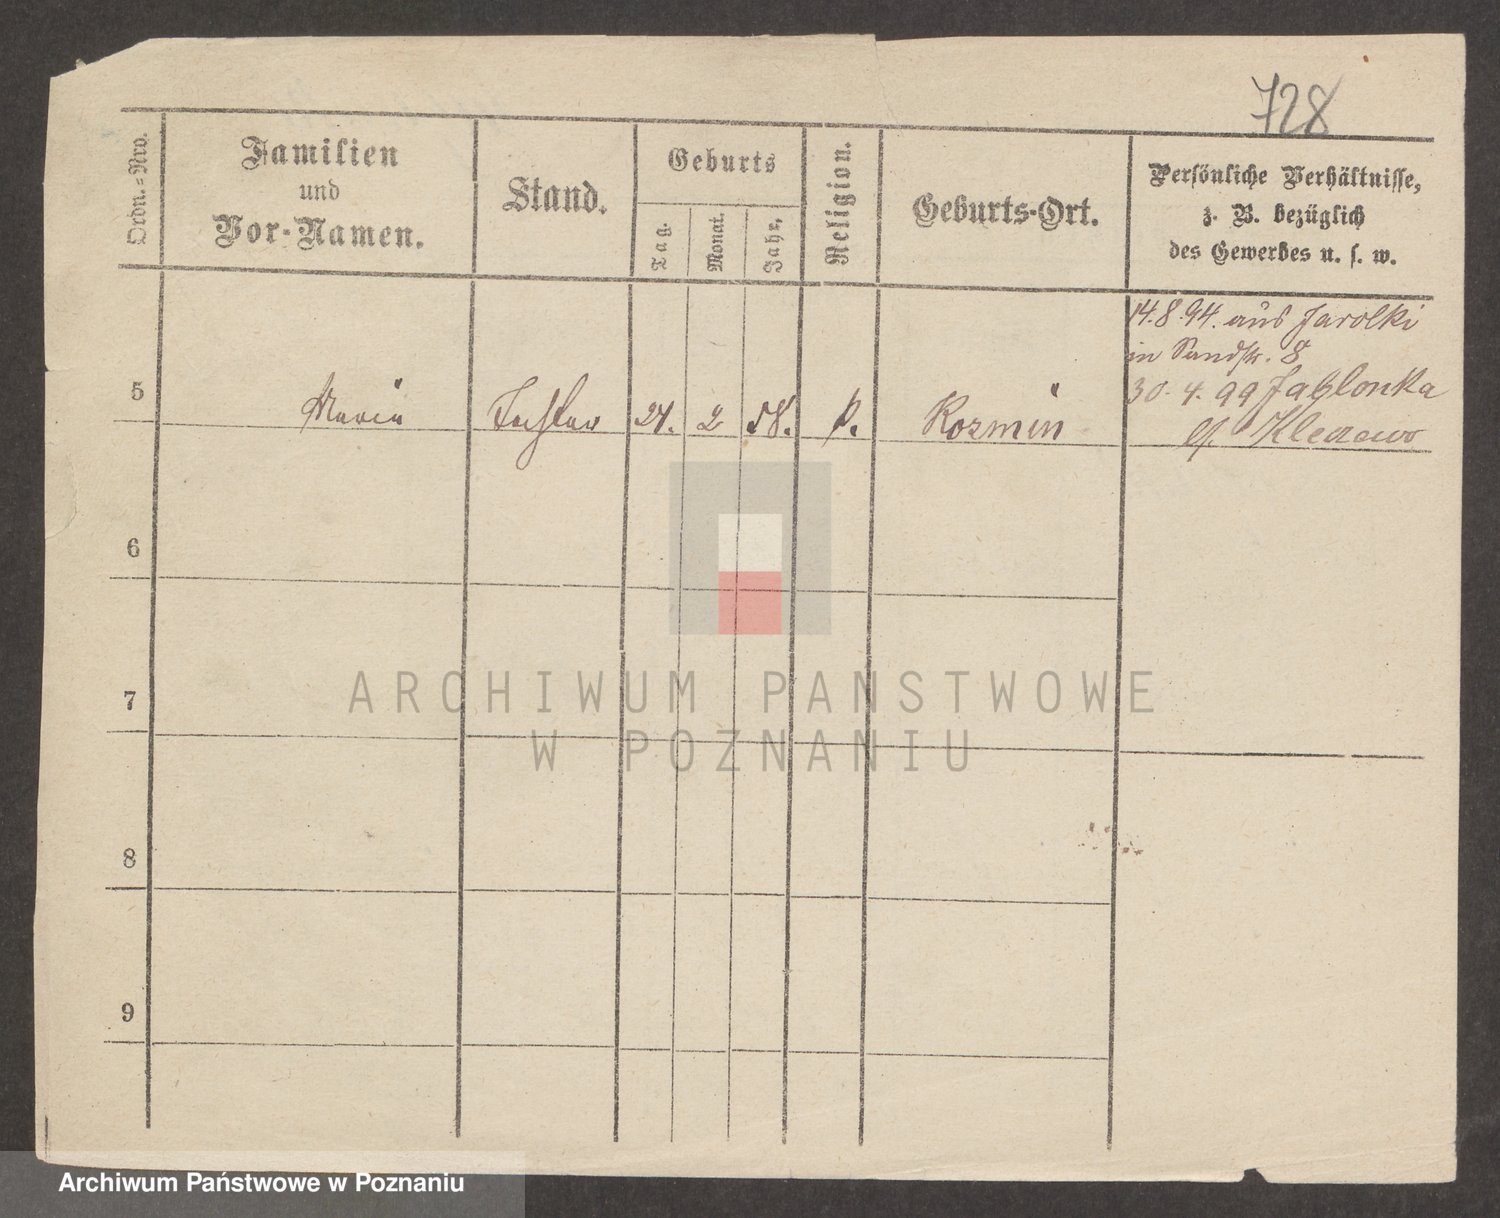 728
Ordn.-Nro.
Familien
und
Vor-Namen.
Stand.
Geburts
Tag.
Monat.
Jahr.
Religion.
Geburts-Ort.
Persönliche Verhältnisse,
z. B. bezüglich
des Gewerbes u. s. w.
14.8.94. aus Jarolki
in Sandstr. 8
30.4.99 Jablonka
5 Maria Tochter 2 58. k. Kozmin
6
7
8
9
ARCHIWUM PAŃSTWOWE
W POZNANIU
Archiwum Państwowe w Poznaniu